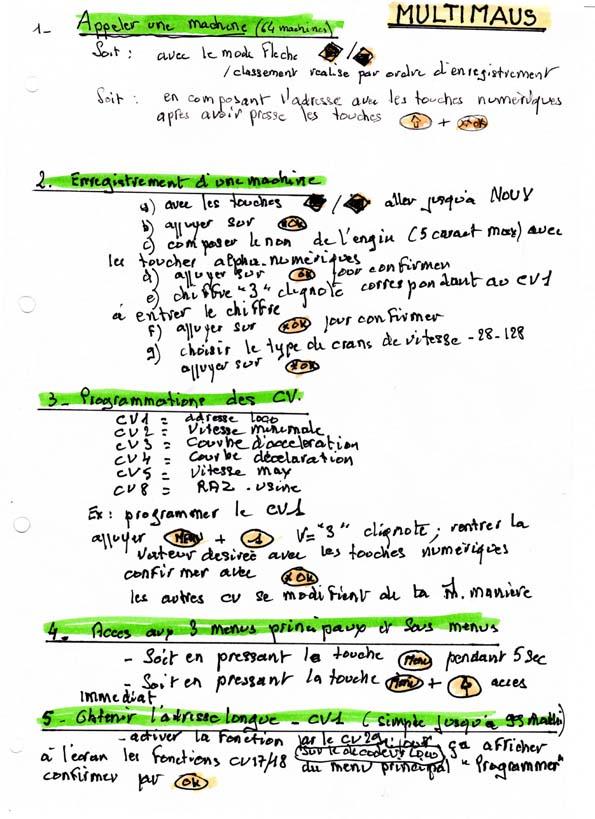 MULTIMAUS
1- Appeler une machine (64 machines)
Soit : avec le mode Fleche /
/ classement réalisé par ordre d'enregistrement
Soit : en composant l'adresse avec les touches numériques
après avoir pressé les touches ⇧ + *OK
2. Enregistrement d'une machine
a) avec les touches / aller jusqu'à NOUV
b) appuyer sur *OK
c) composer le non de l'engin (5 caract max) avec
les touches alpha.numériques
d) appuyer sur OK pour confirmer
e) chiffre "3" clignote correspondant au CV1
à entrer le chiffre
F) appuyer sur *OK pour confirmer
g) choisir le type de crans de vitesse - 28-128
appuyer sur *OK
3_ Programmations des CV.
CV1 = adresse loco
CV2 = Vitesse minimale
CV3 = Courbe d'acceleration
CV4 = Courbe décelaration
CV5 = Vitesse max
CV8 = RAZ. usine
Ex : programmer le CV1
appuyer MENU + 1 V="3" clignote; rentrer la
valeur désirée avec les touches numériques
confirmer avec *OK
les autres cv se modifient de la m. manière
4. Acces aux 3 menus principaux et sous menus
- Soit en pressant la touche Menu pendant 5 sec
- Soit en pressant la touche Menu + acces
immédiat
5 - Obtenir l'adresse longue - CV1 (simple jusqu'a 99
- activer la fonction par le CV29 ça afficher
sur le décodeur loco
à l'écran les fonctions CV17/18 du menu principal "Programmer"
confirmer par OK